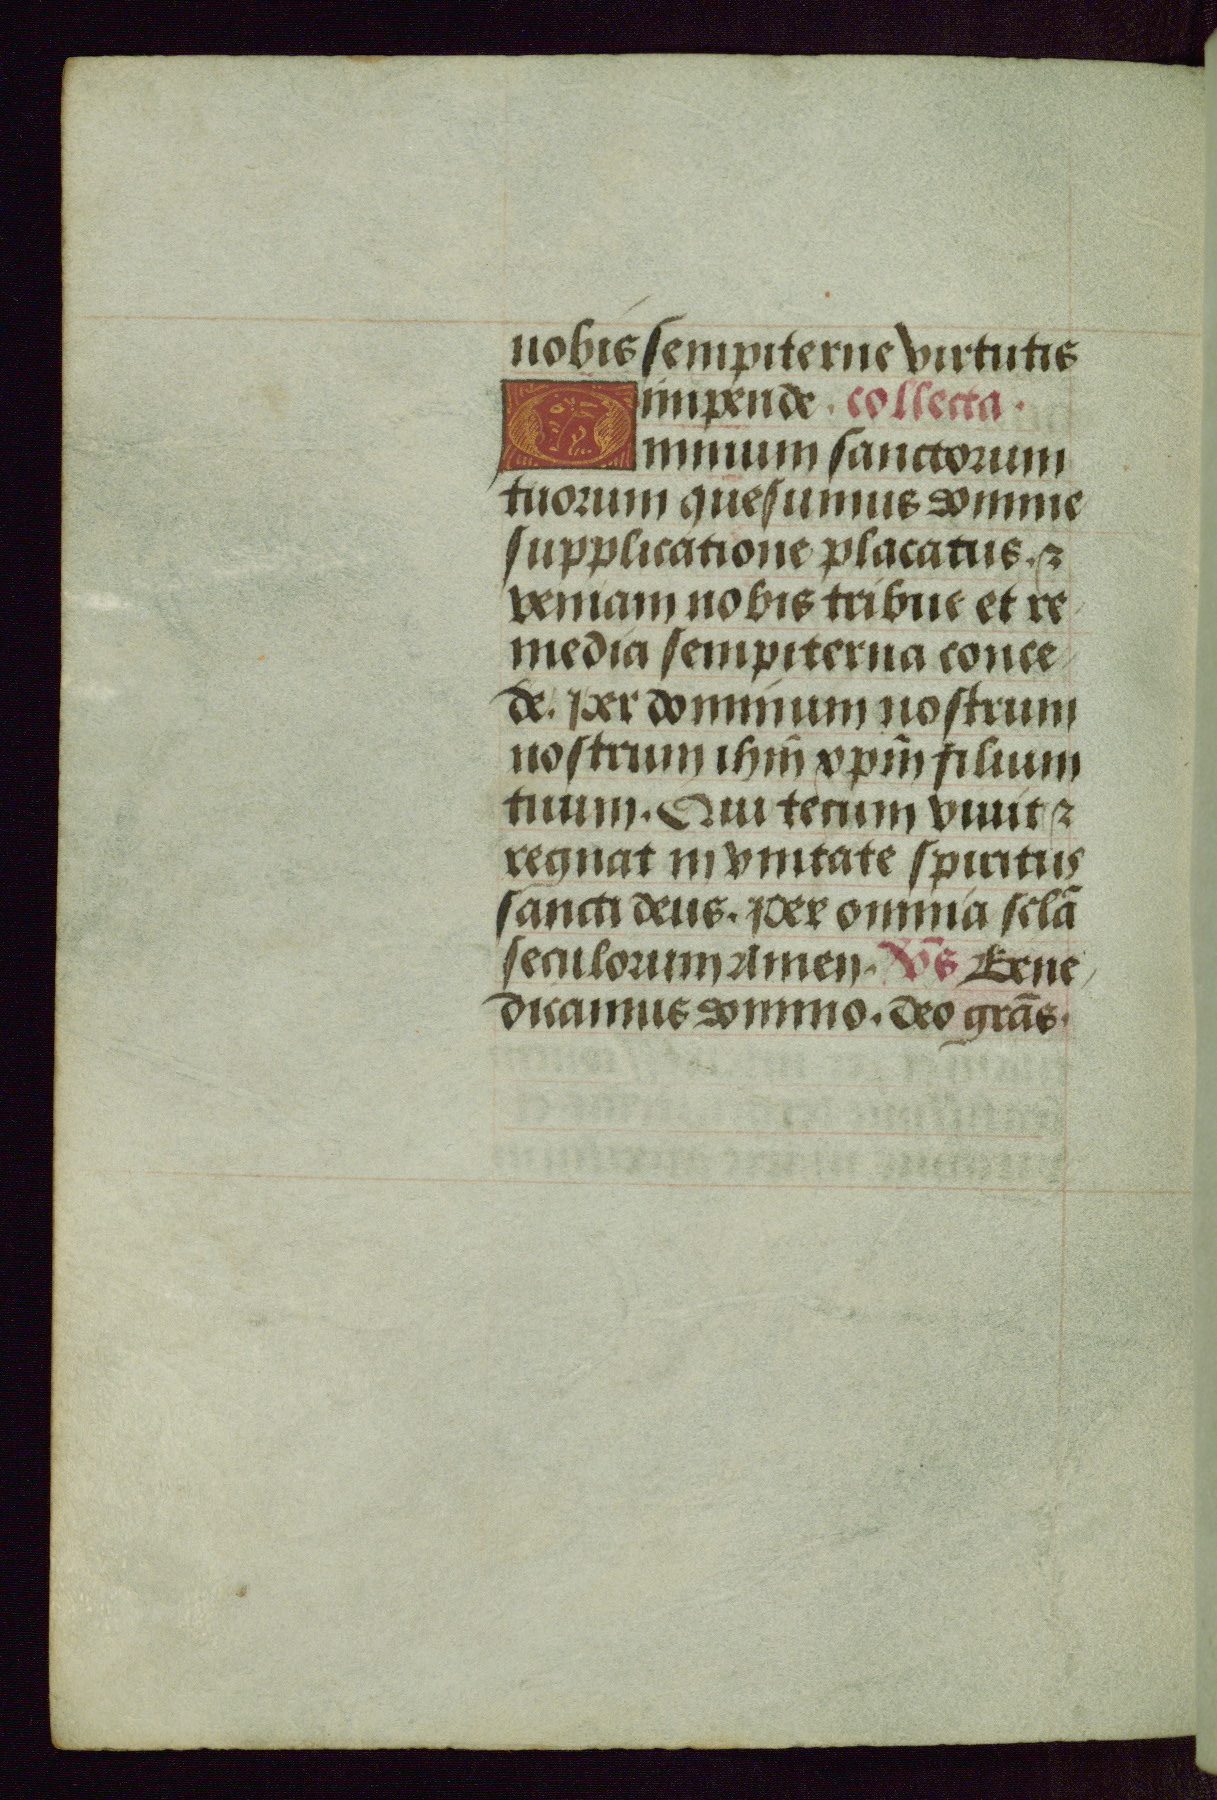 nobis sempiterne virtutis
impende. collecta.
Omnium sanctorum
tuorum quesumus domine
supplicatione placatus. ⁊
veniam nobis tribue et re
media sempiterna conce
de. Per dominum nostrum
nostrum ihm̄ xpm̄ filium
tuum. Qui tecum viuit ⁊
regnat in vnitate spiritus
sancti deus. Per omnia sclā
seculorum Amen. Vs̄ Bene
dicamus domino. deo grās.